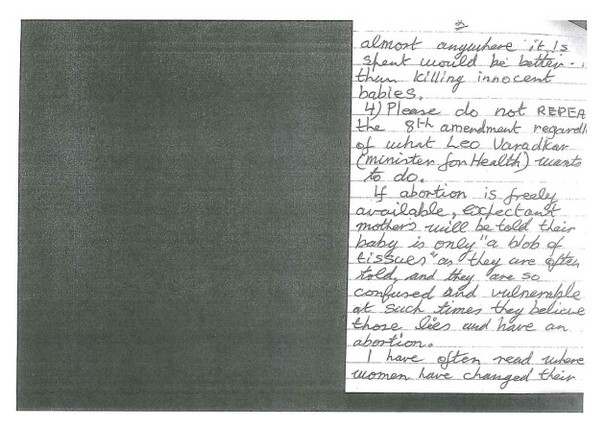 almost anywhere it is
spent would be better
than killing innocent
babies.
4) Please do not REPEA
the 8th amendment regardl
of what Leo Varadkar
(minister for Health) wants
to do.
If abortion is freely
available, expectant
mothers will be told their
baby is only "a blob of
tissues" as they are often
told, and they are so
confused and vulnerable
at such times they believe
those lies and have an
abortion.
I have often read where
women have changed their